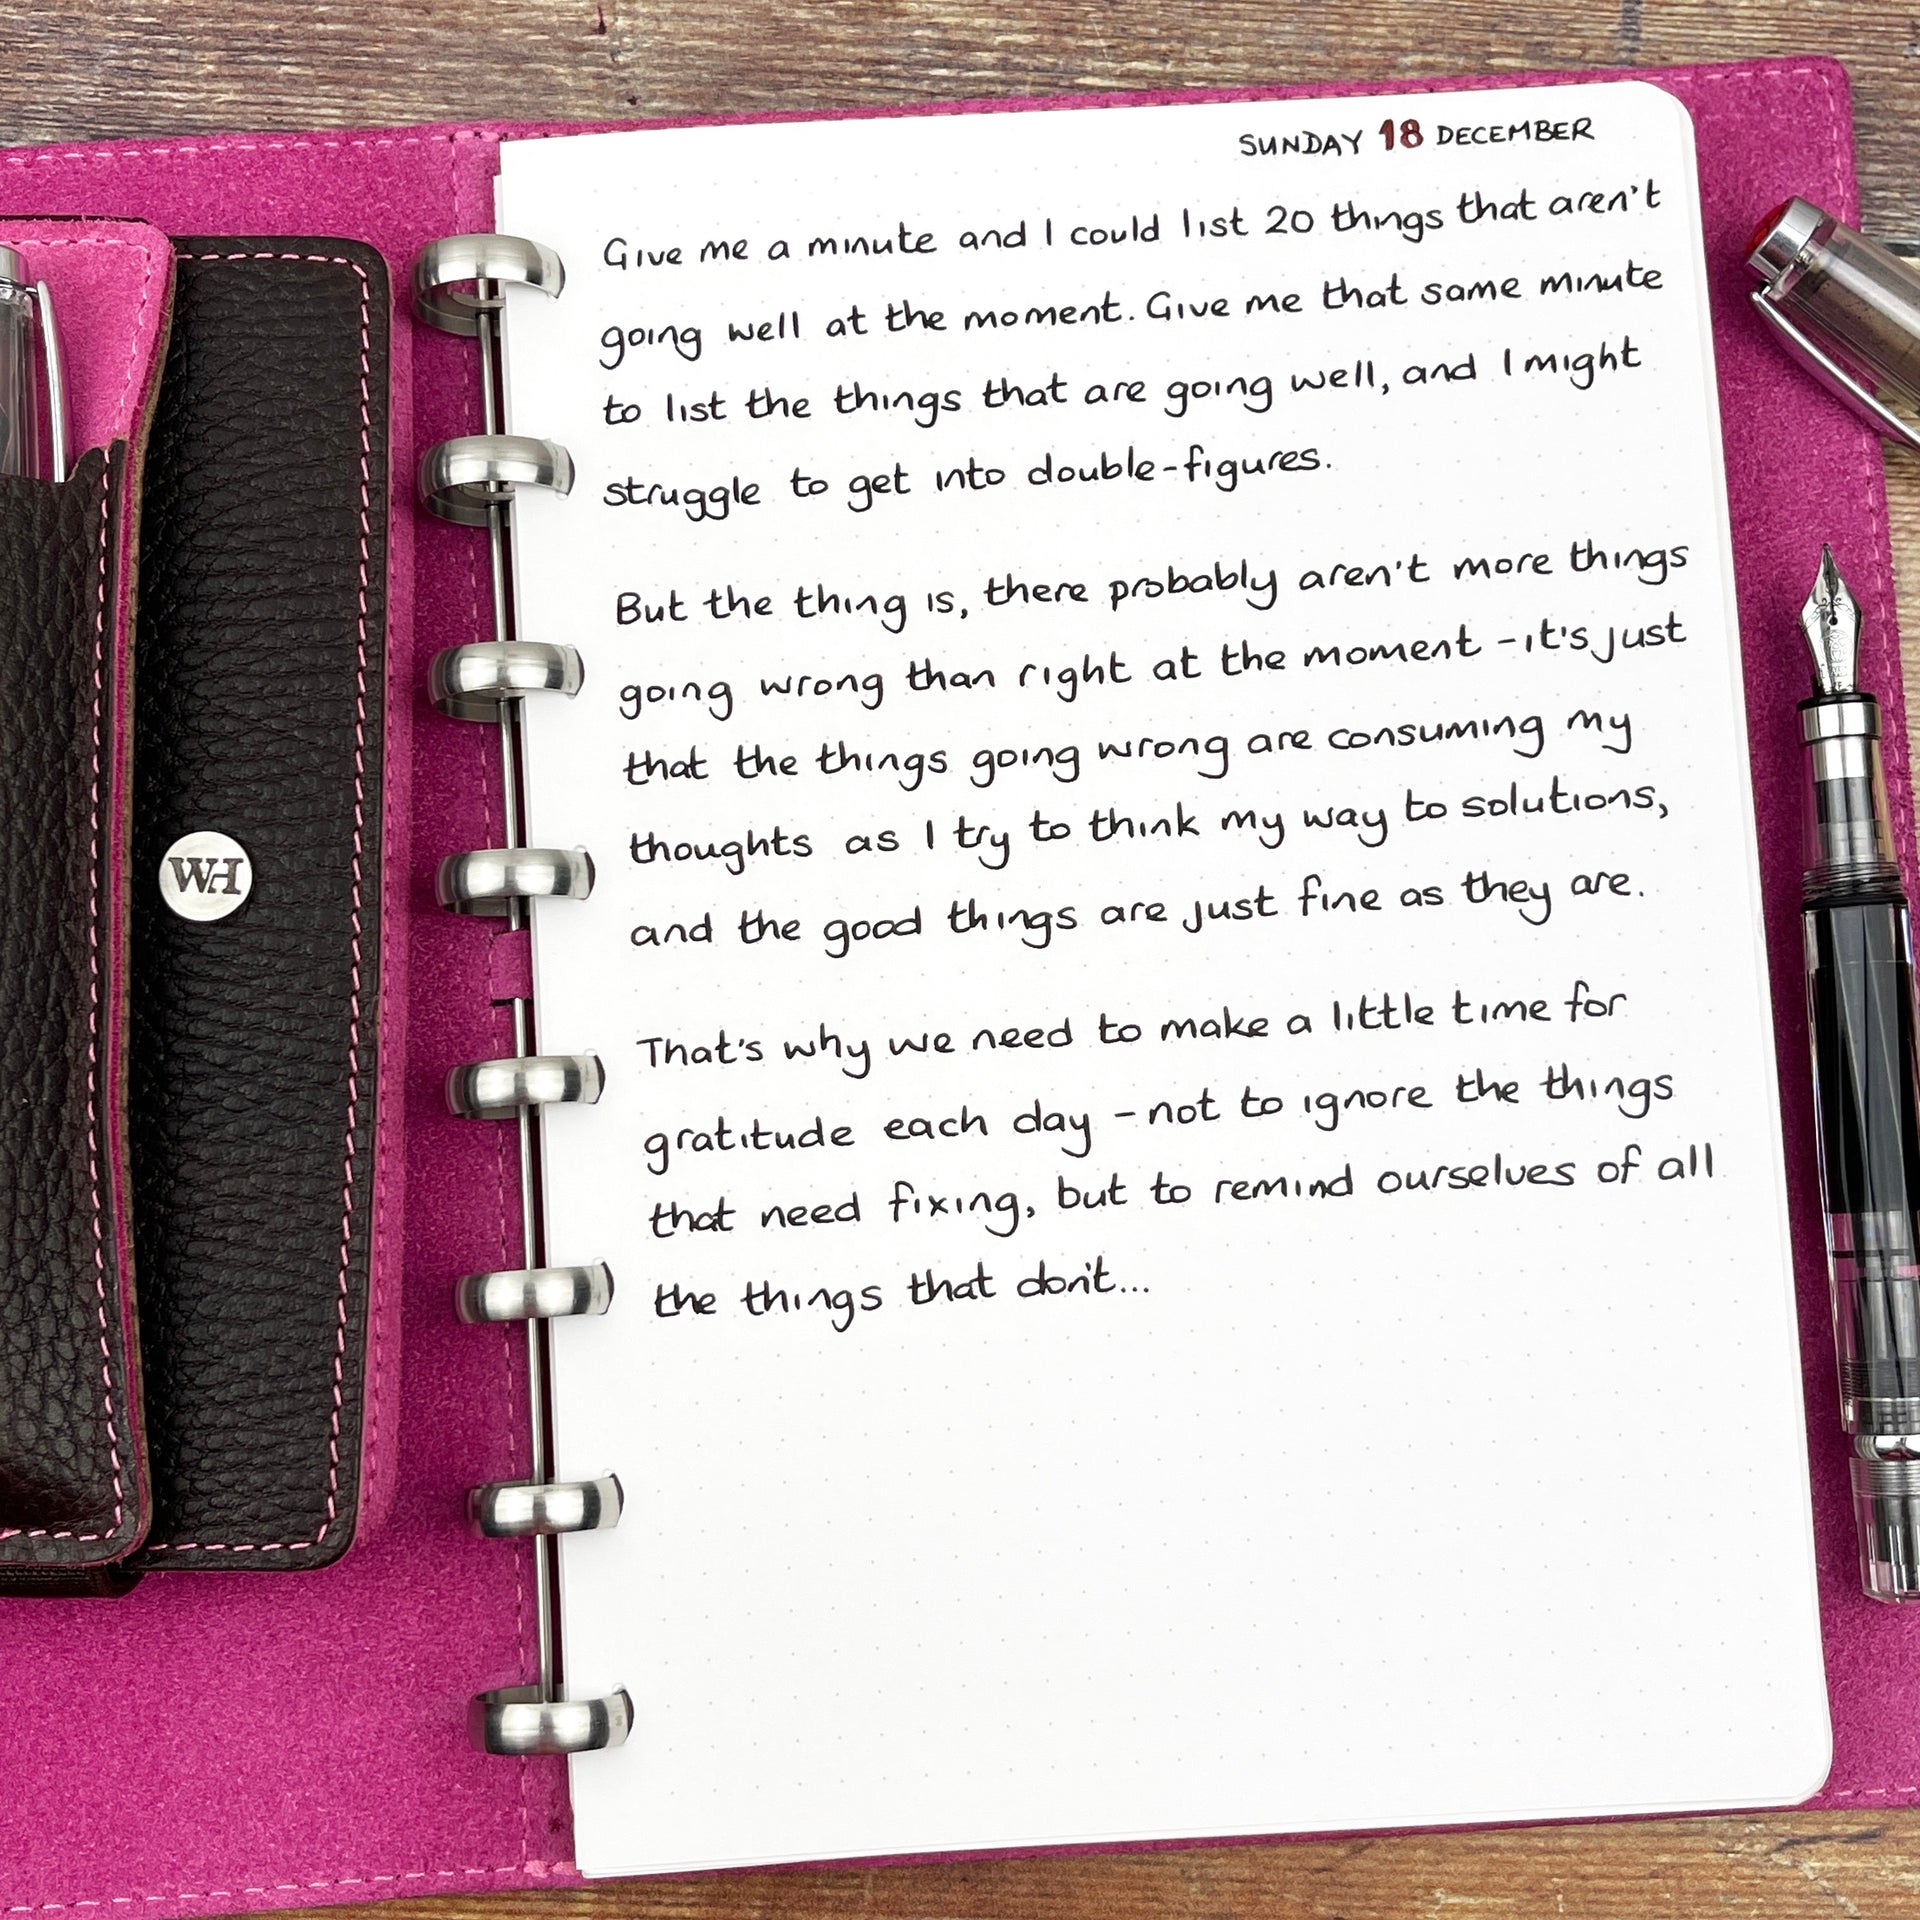 SUNDAY 18 DECEMBER
Give me a minute and I could list 20 things that aren't
going well at the moment. Give me that same minute
to list the things that are going well, and I might
struggle to get into double-figures.
But the thing is, there probably aren't more things
going wrong than right at the moment - it's just
that the things going wrong are consuming my
thoughts as I try to think my way to solutions,
and the good things are just fine as they are.
That's why we need to make a little time for
gratitude each day - not to ignore the things
that need fixing, but to remind ourselves of all
the things that don't...
WH